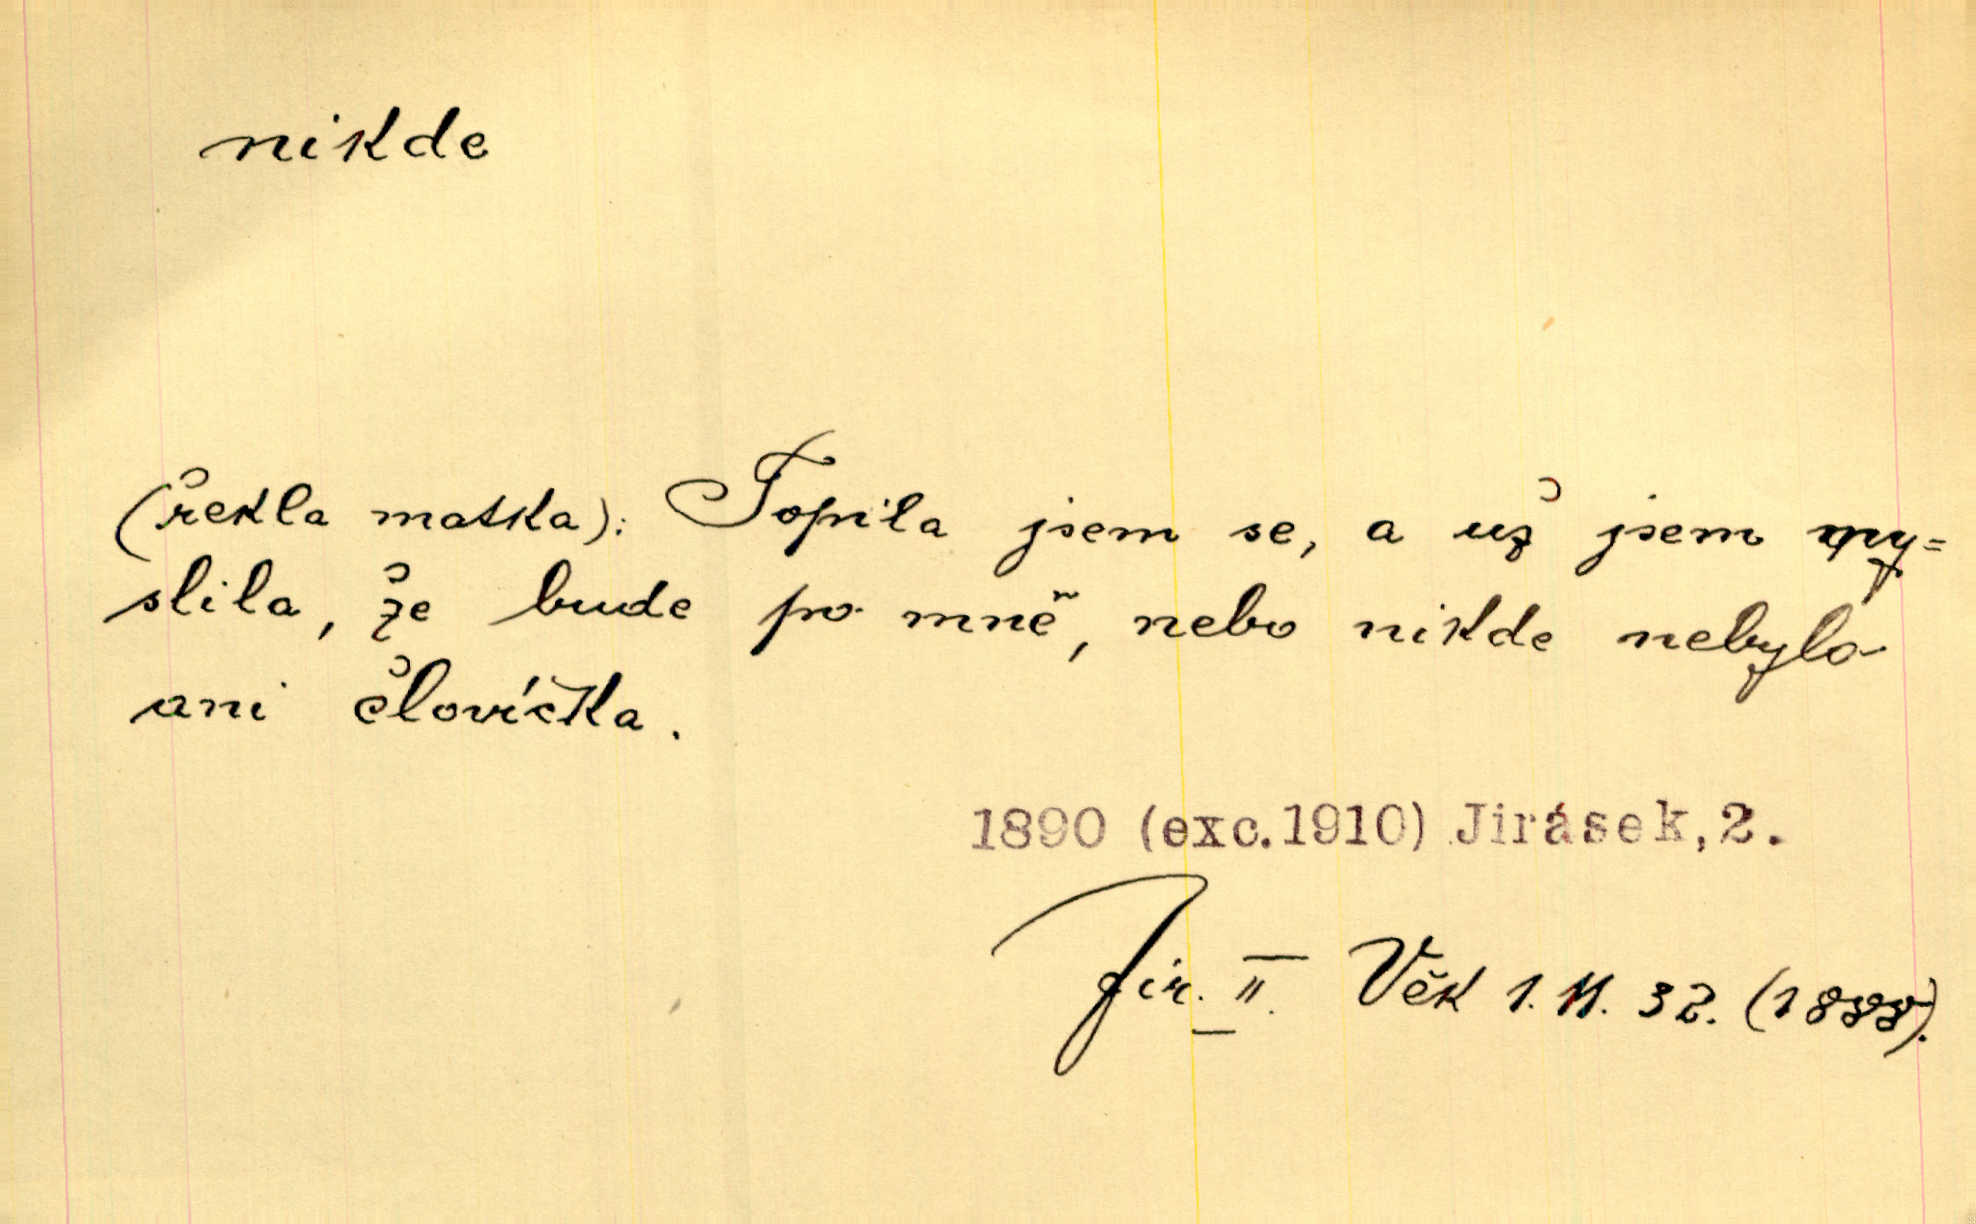 nikde
(řekla matka): Topila jsem se, a už jsem my=
slila, že bude po mně, nebo nikde nebylo
ani človíčka.
1890 (exc.1910) Jirásek,2.
Jir. II. Věk 1.11. 32. (1888).